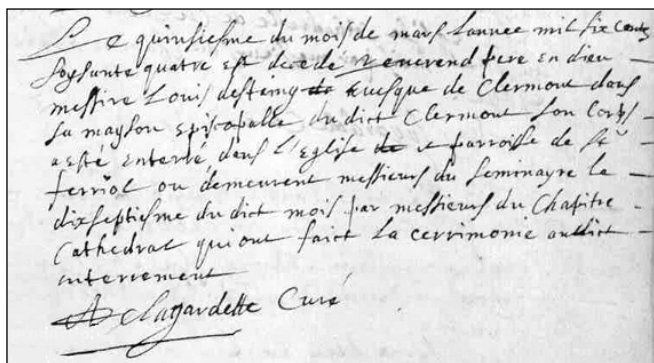 Le quinsiesme du mois de mars lannee mil six cents
soysante quatre est decede Reverend pere en dieu
messire Louis desteing evesque de Clermont dans
sa mayson episcopalle du dict Clermont son corps
a esté enterré dans l'eglise et parroisse de St
ferriol ou demeurent messieurs du seminayre le
dixseptiesme du dict mois par messieurs du Chapitre
Cathedral qui ont faict la cerrimonie audict
enterrement
Lagardette Curé